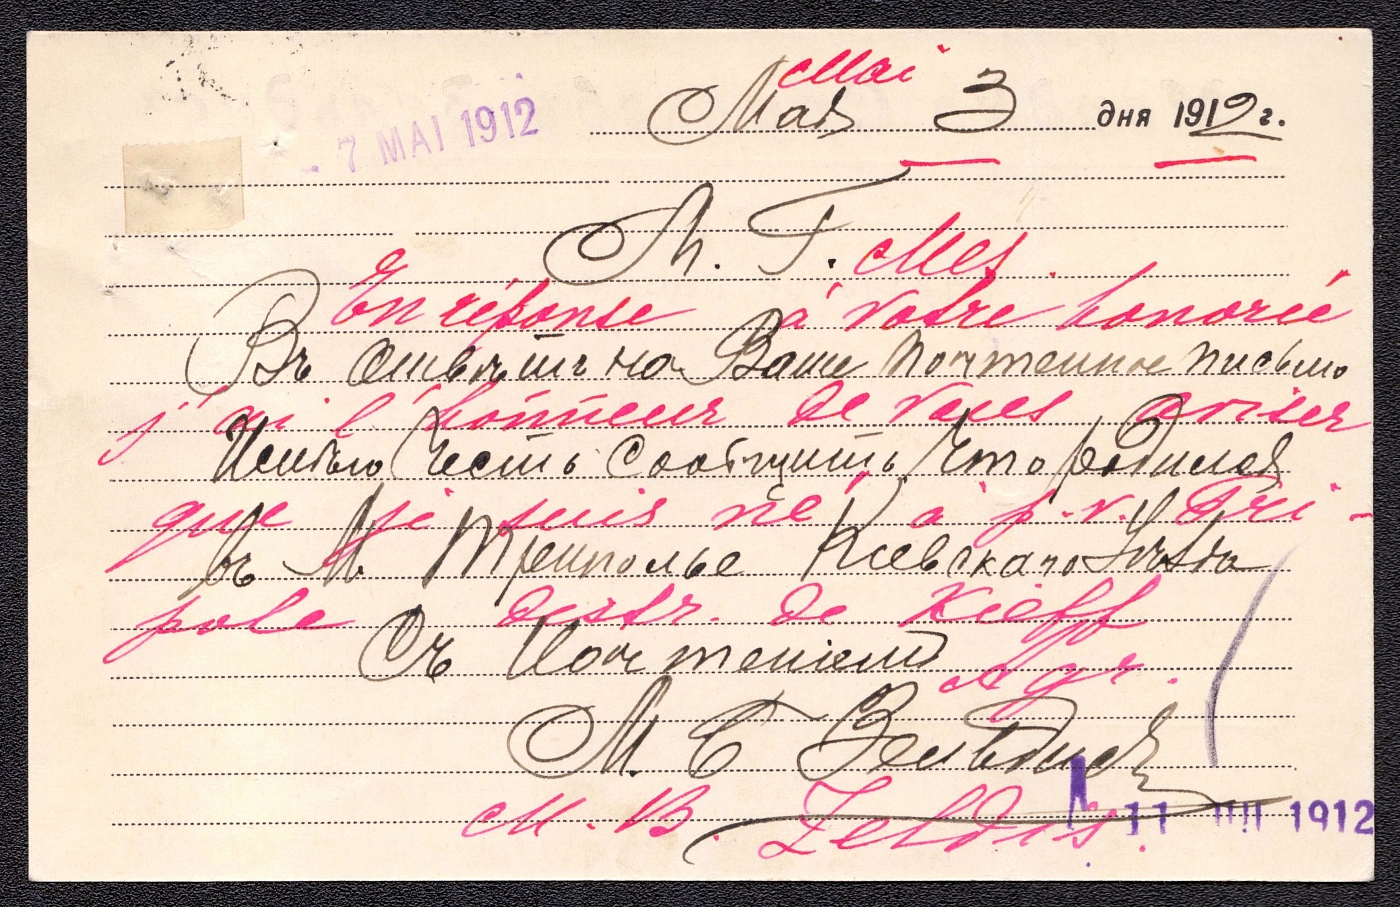 Mai
- 7 MAI 1912
Мая 3 дня 1912 г.
М. Г. Mes
En réponse à votre honorée
Въ Отвѣтъ на Ваше Почтенное письмо
j'ai l'honneur de vous aviser
Имѣю Честь Сообщить, Что родился
que je suis né à p. v. Tri-
въ М. Триполье Кіевскаго Уѣзда
pole distr. de Kieff
Съ Почтеніемъ
Agr.
М. Б. Зельдис
M. B. Zeldis.
11 1912